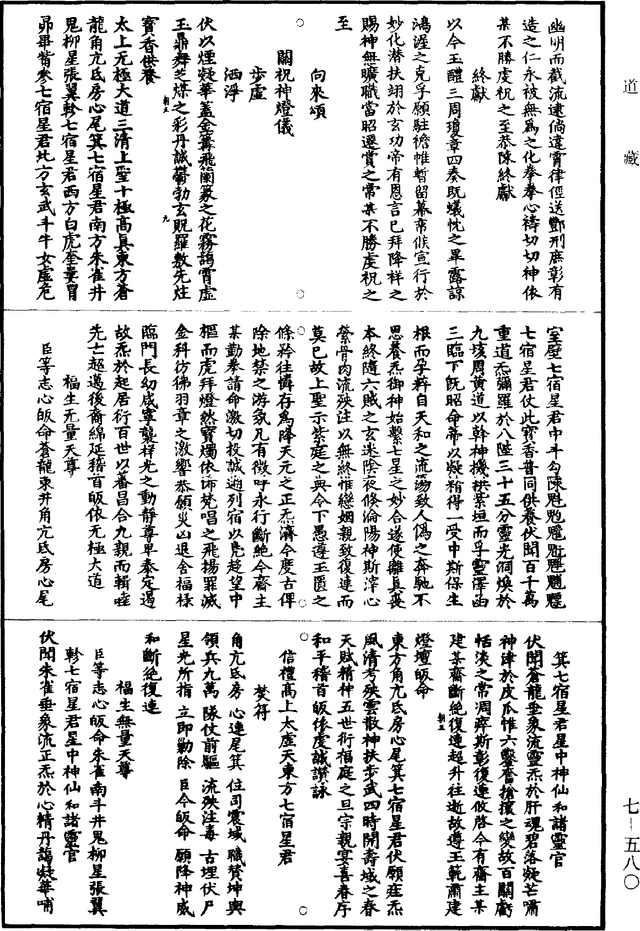 道藏
幽明而戢流逮倘違霄律俓送酆刑庶彰有
造之仁永被無為之化拳拳心禱切切神依
某不勝虔祝之至恭陳終獻
終獻
以今玉醴三周瓊章四奏既蟻忱之畢露諒
鴻渥之克孚願駐襜帷暫留幕帟候宣行於
妙化潛扶翊於玄功帝有恩言已拜降祥之
賜神無曠職當昭遷賞之常某不勝虔祝之
至
向來頌
關祝神燈儀
步虛
洒淨
伏以煙凝華蓋金篝飛蘭篆之花霧鎬霄虛
玉鼎舞芝煤之彩丹誠鬱勃玄貺羅敷先炷
寶香供養
太上無極大道三清上聖十極高真東方蒼
龍角亢氐房心尾箕七宿星君南方朱雀井
鬼柳星張翼軫七宿星君西方白虎奎婁胃
昴畢觜參七宿星君北方玄武斗牛女虛危
室壁七宿星君中斗勾陳魁𩲃
七宿星君仗此寶香普同供養伏聞百千萬
重道炁彌羅於八陛三十五分靈光洞煥於
九垓周黃道以斡神機拱紫垣而孚靈澤函
三臨下既昭命帝以凝稍得一受中斯保生
根而孕粹自天和之流蕩致人偽之奔馳不
思養炁御神始繫七星之妙合遂使離真喪
本終隨六賊之玄迷陰夜脩淪陽神斯滓心
縈骨肉流殃注以無終惟戀姻親致復連而
莫已故上聖示紫庭之典令下愚遵玉匱之
條矜往憐存為降天元之正炁濟今度古俾
除地禁之游氛凡有徵呼永行斷絕今齋主
某勤拳請命激切投誠遍列宿以克趍望中
樞而虔拜燈然寶燭依俙梵唱之飛揚罪滅
金科彷彿羽章之激響恭願災凶退舍福祿
臨門長幼咸寧襲祥光之動靜尊卑泰定遏
故炁於起居衍百世以蕃昌合九親而輯睦
先亡超邁後裔綿延稽首皈依无極大道
福生无量天尊
臣等志心皈命蒼龍東井角亢氐房心尾
箕七宿星君星中神仙和諸靈官
伏聞蒼龍垂象流靈炁於肝魂碧落凝芒嘯
神津於皮瓜惟六鑿奮搶攘之變故百關虧
恬淡之常凋瘁斯彰復連攸啓今有齋主某
建某齋斷絕復連超升往逝故遵玉範肅建
燈壇皈命
東方角亢氐房心尾箕七宿星君伏願莊炁
風清考殃雲散神扶步武四時開壽域之春
天賦精神五世衍福庭之旦宗親宴喜眷序
和平稽首皈依虔誠讚詠
信禮高上太虛天東方七宿星君
焚符
角亢氐房 心連尾箕 住司震域 職贊坤輿
領兵九萬 隊仗前驅 流殃注毒 古埋伏尸
星光所指 立即勦除 臣今皈命 願降神威
和斷絕復連
福生無量天尊
臣等志心皈命朱雀南斗井鬼柳星張翼
軫七宿星君星中神仙和諸靈官
伏聞朱雀垂象流正炁於心精丹鎬凝華哺
七—五八〇